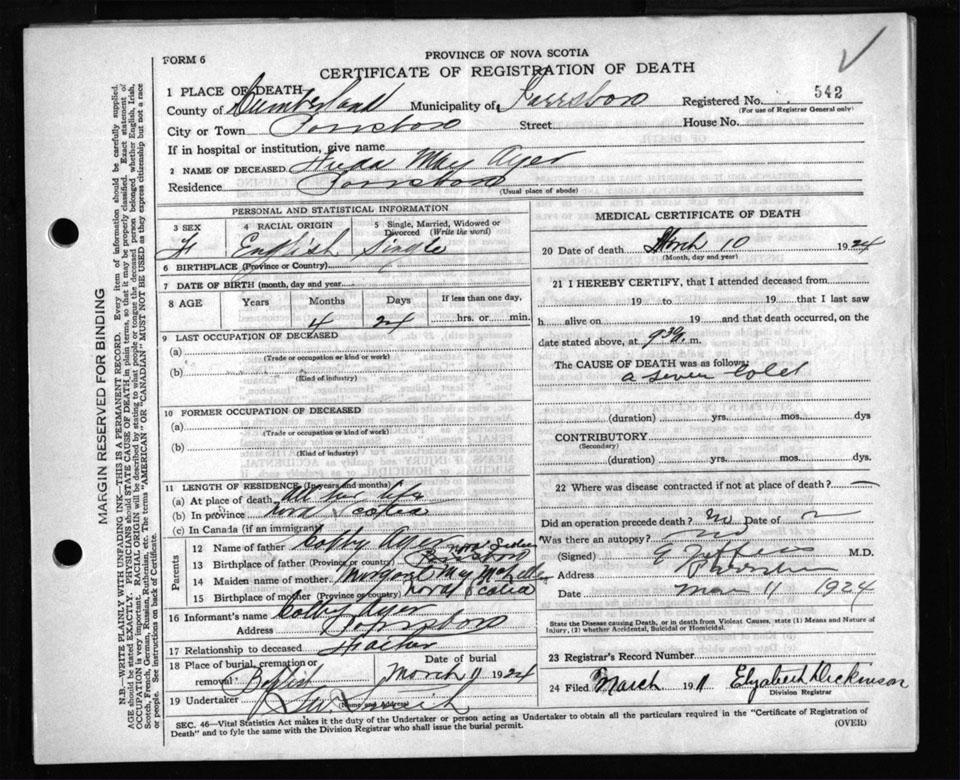 FORM 6
PROVINCE OF NOVA SCOTIA
CERTIFICATE OF REGISTRATION OF DEATH
1 PLACE OF DEATH—
County of Cumberland Municipality of Parrsboro Registered No. 542
(For use of Registrar General only)
City or Town Parrsboro Street House No.
If in hospital or institution, give name
2 NAME OF DECEASED May Ayer
Residence Parrsboro
(Usual place of abode)
PERSONAL AND STATISTICAL INFORMATION
3 SEX 4 RACIAL ORIGIN 5 Single, Married, Widowed or Divorced (Write the word)
F English Single
6 BIRTHPLACE (Province or Country)
7 DATE OF BIRTH (month, day and year)
8 AGE Years Months Days If less than one day,
4 24 hrs. or min.
9 LAST OCCUPATION OF DECEASED
(a)
(Trade or occupation or kind of work)
(b)
(Kind of industry)
10 FORMER OCCUPATION OF DECEASED
(a)
(Trade or occupation or kind of work)
(b)
(Kind of industry)
11 LENGTH OF RESIDENCE (in years and months)
(a) At place of death All her life
(b) In province Nova Scotia
(c) In Canada (if an immigrant)
Parents
12 Name of father Colby Ayer
13 Birthplace of father (Province or country) Parrsboro Nova Scotia
14 Maiden name of mother Margaret May
15 Birthplace of mother (Province or country) Nova Scotia
16 Informant's name Colby Ayer
Address Parrsboro
17 Relationship to deceased Father
18 Place of burial, cremation or removal Baptist
Date of burial
March 11 1924
19 Undertaker Smith
(Name and address)
MEDICAL CERTIFICATE OF DEATH
20 Date of death March 10 1924
(Month, day and year)
21 I HEREBY CERTIFY, that I attended deceased from
19 to 19 that I last saw
h alive on 19 and that death occurred, on
date stated above, at 9 30 m.
The CAUSE OF DEATH was as follows:
a sever Cold
(duration) yrs. mos. dys
CONTRIBUTORY
(Secondary)
(duration) yrs. mos. dys.
22 Where was disease contracted if not at place of death? —
Did an operation precede death? no Date of
Was there an autopsy? no
(Signed) M.D.
Address Parrsboro
Date Mar 11 1924
State the Disease causing Death, or in death from Violent Causes, state (1) Means and Nature of Injury, (2) whether Accidental, Suicidal or Homicidal.
23 Registrar's Record Number
24 Filed March 11 Elizabeth Dickinson
Division Registrar
SEC. 46—Vital Statistics Act makes it the duty of the Undertaker or person acting as Undertaker to obtain all the particulars required in the "Certificate of Registration of
Death" and to fyle the same with the Division Registrar who shall issue the burial permit.
(OVER)
MARGIN RESERVED FOR BINDING
N.B.—WRITE PLAINLY WITH UNFADING INK—THIS IS A PERMANENT RECORD. Every item of information should be carefully supplied.
AGE should be stated EXACTLY. PHYSICIANS should STATE CAUSE OF DEATH in plain terms, so that it may be properly classified. Exact statement of
OCCUPATION is very important. RACIAL ORIGIN will be described by stating to what people or tongue the deceased person belonged whether English, Irish,
Scotch, French, German, Russian, Ruthenian, etc. The terms "AMERICAN" OR "CANADIAN" MUST NOT BE USED as they express citizenship but not a race
or people. See instructions on back of Certificate.